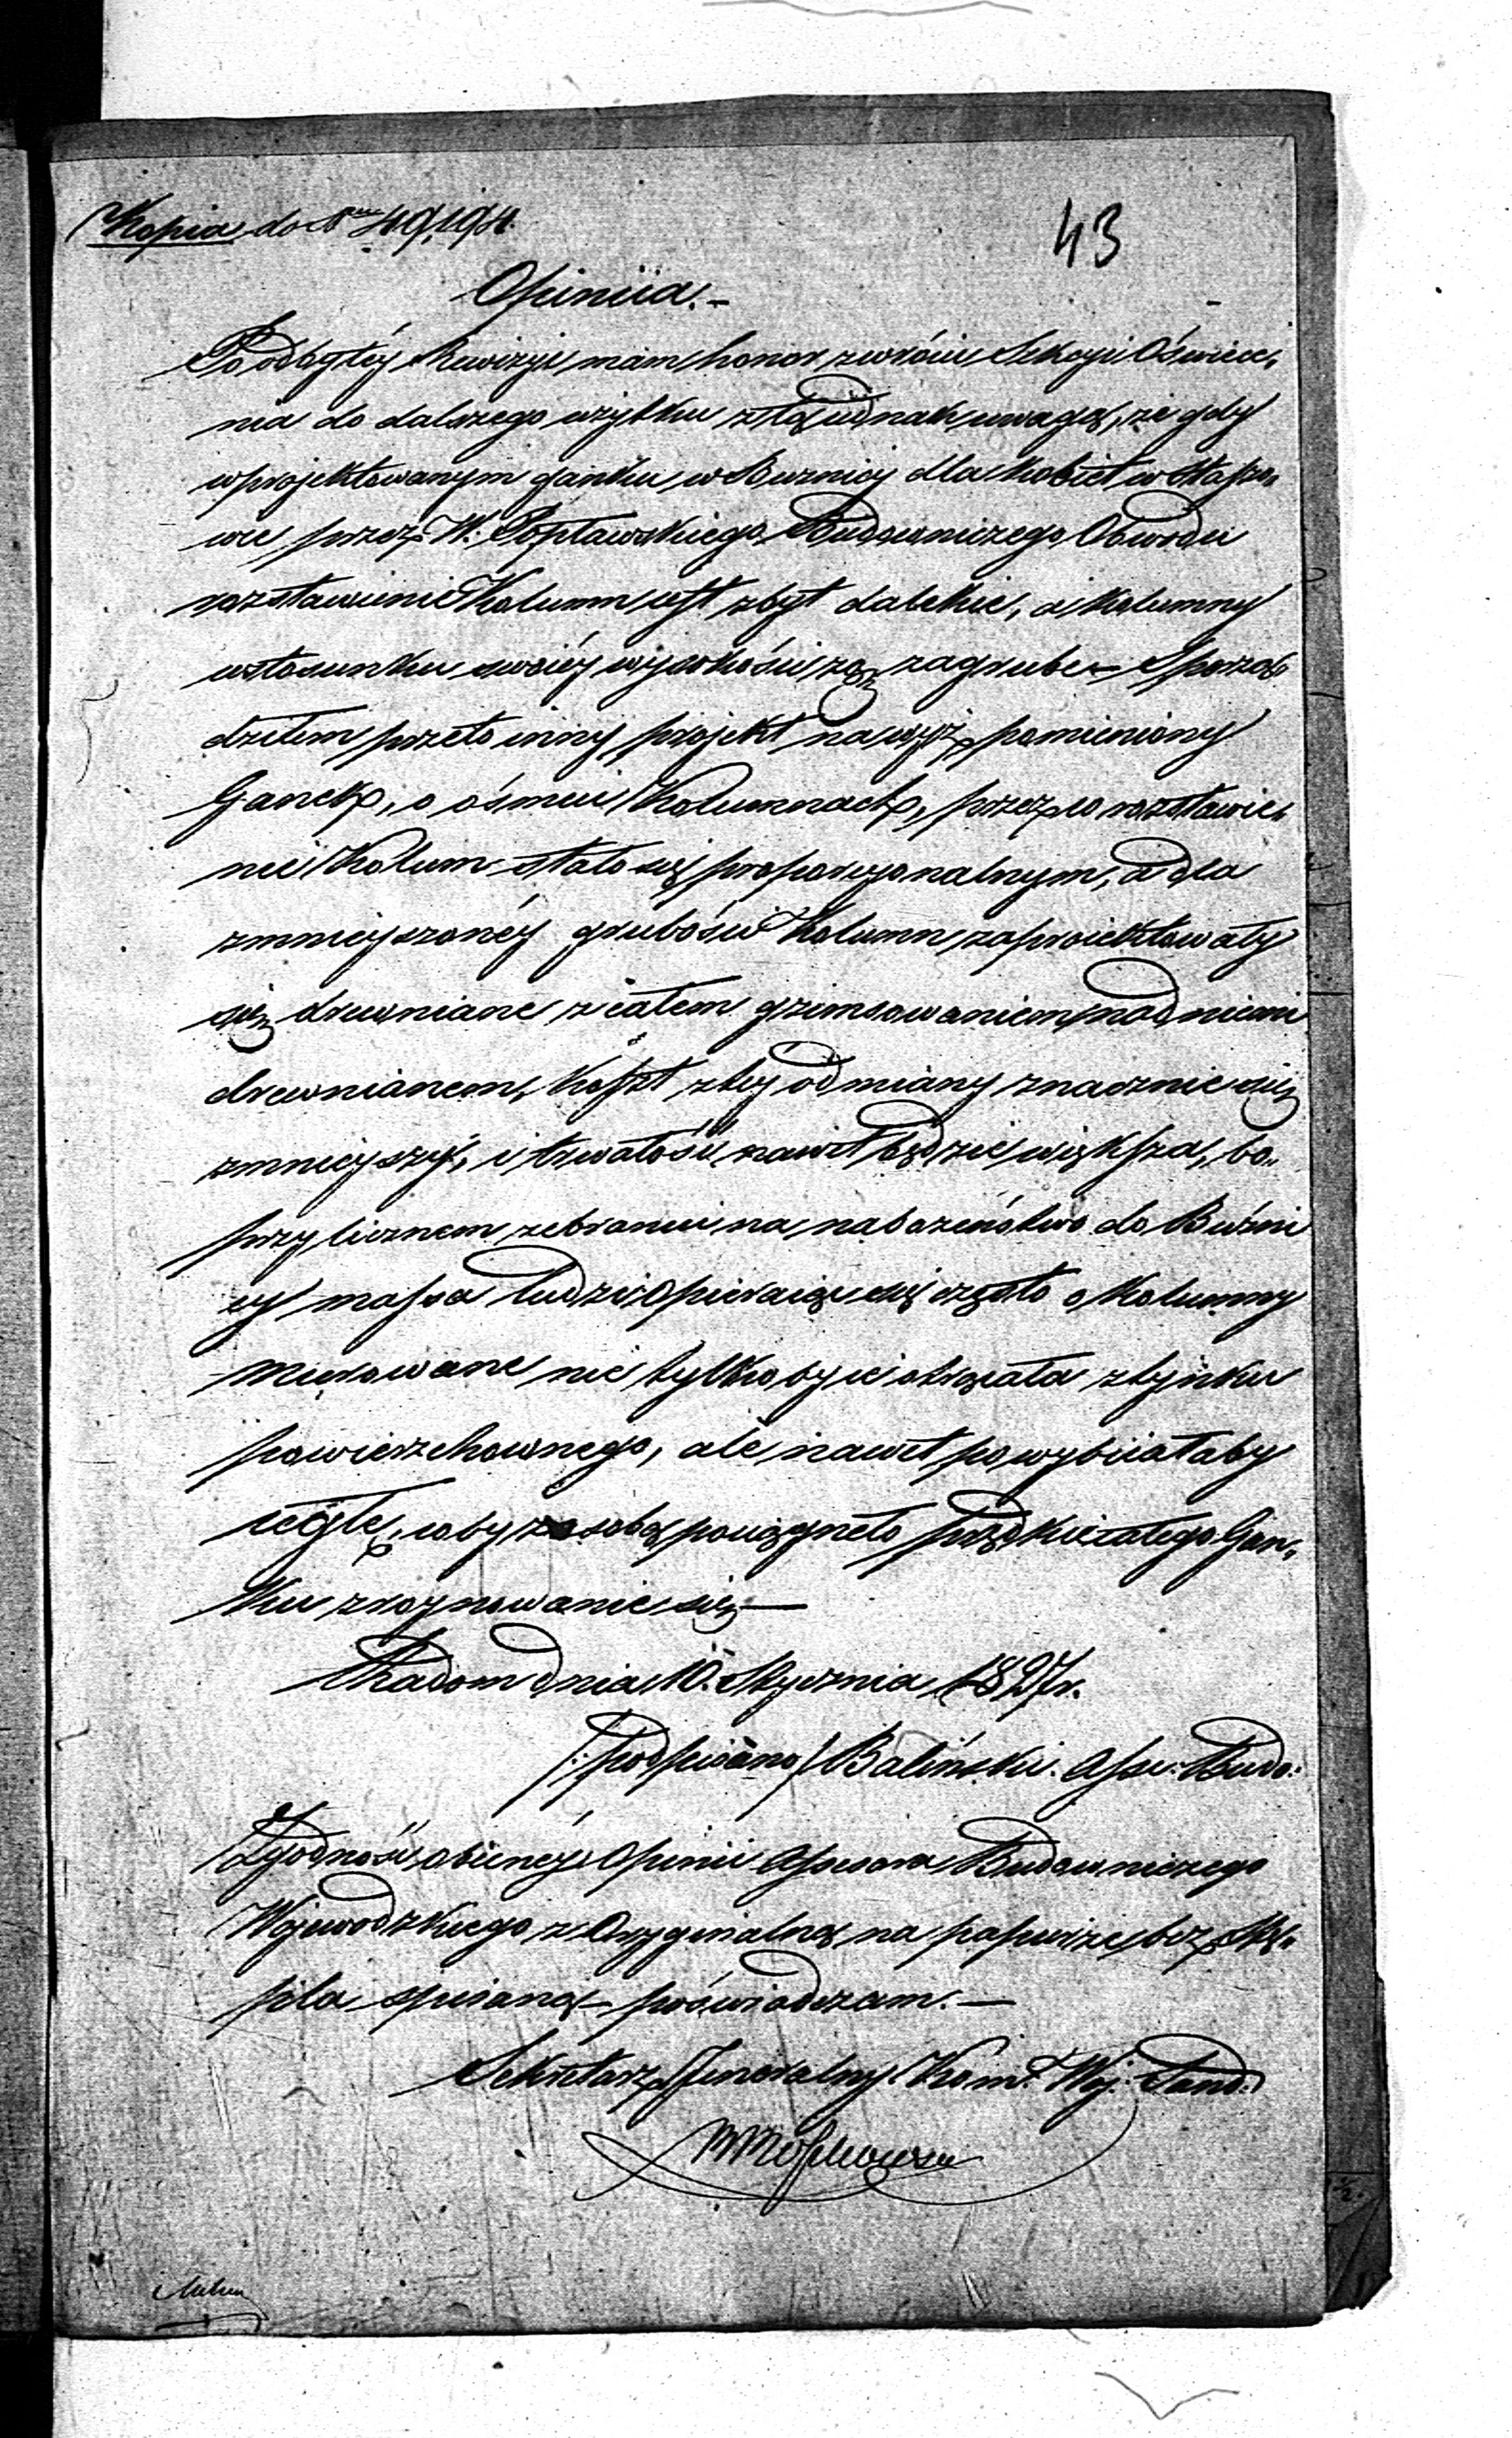 Kopia do Nru 49,194.
43
Opiniia.-
Po odbytéy Rewizyi mam honor zwrócić Sekcyi Oświece„
nia do dalszego użytku z tą iednak uwagą, że gdy
w projektowanym ganku w Bużnicy dla kobiet w Staszo„
wie przez W. Popławskiego Budowniczego Obwodu
rozstawienie Kolumn iest zbyt dalekie, a kolumny
w stosunku swoiéy wysokości są zagrube - Sporzą„
dziłem przeto inny projekt na wyż pomieniony
Ganek, o ośmiu Kolumnach, przez co rozstawie„
nie Kolumn stało się proporcyonalnym, a dla
zmnieyszonéy grubości Kolumn zaproiektowały
się drewniane z całem gzimsowaniem nad niemi
drewnianem, Koszt z tey odmiany znacznie się
zmnieyszy, i trwałość nawet będzie większa, bo„
przy licznem zebraniu na nabożeństwo do Bużni
cy massa ludzi opieraiąc się często o Kolumny
murowane nie tylko by ie obrzała z tynku
powierzchownego, ale nawet powybiiałaby
cegłę, coby za sobą pociągneło prędkie całego Gan„
ku zroynowanie się —
Radom dnia 10. Stycznia 1827 r.
/: podpisano / Baliński. Asse: Budo:
Zgodność obecnéy Opinii Assesora Budowniczego
Wojewodzkiego z Oryginalną na papierze bez Stę„
pla spisaną - poświadczam. —
Sekretarz Jeneralny Kom. Woj. Sand: